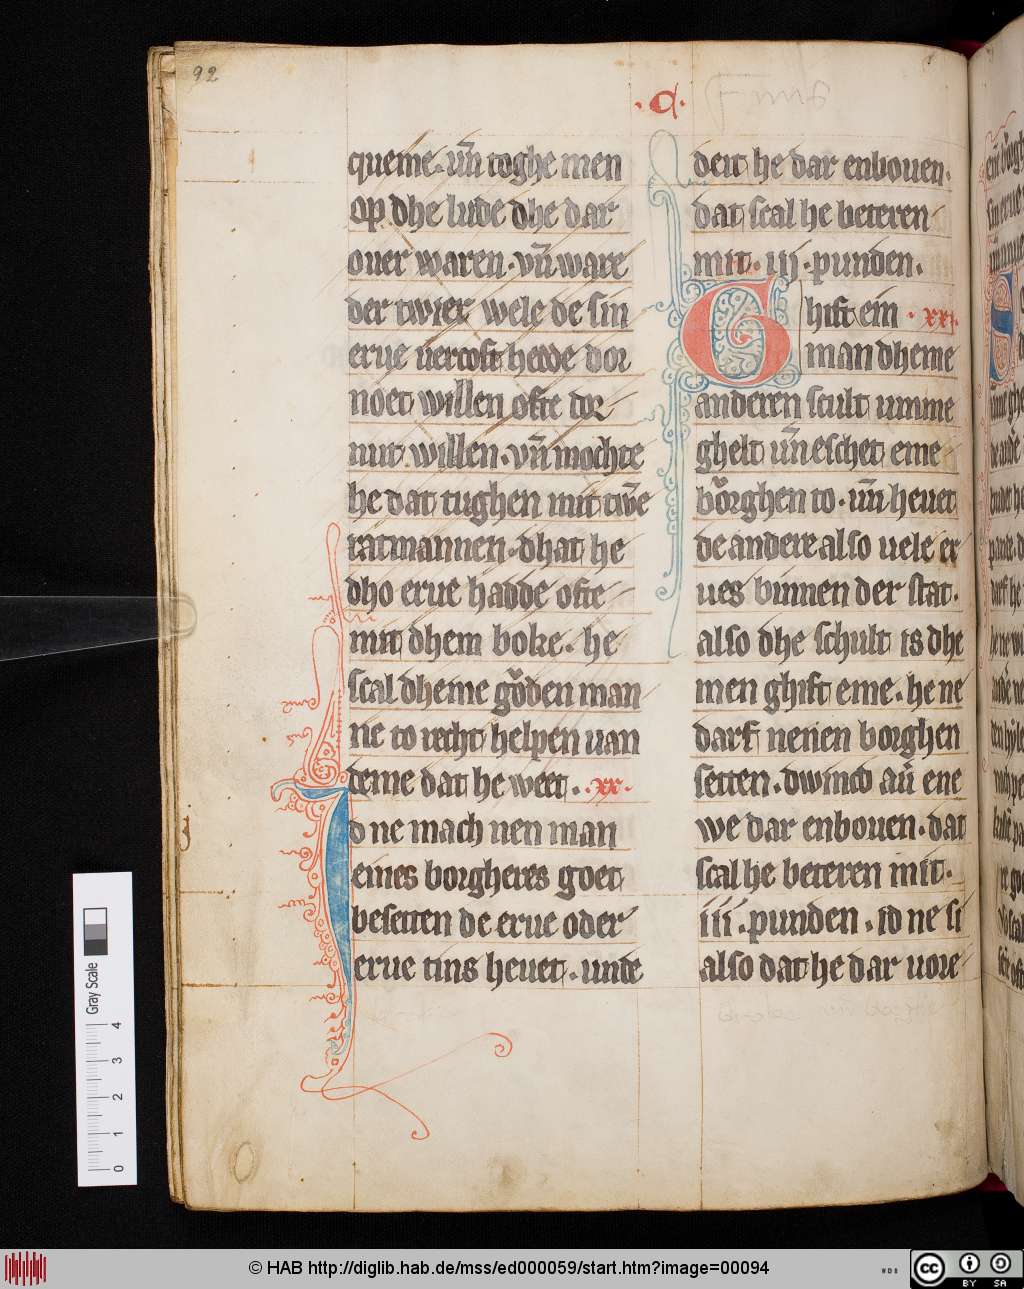 92
·C·
queme. vn̄ toghe men
op dhe lude dhe dar
ouer waren. vn̄ ware
der twier wele de sin
erue vercoft hedde dor
noet willen ofte dor
nut willen. vn̄ mochte
he dat tughen mit twēe
ratmannen. dhat he
dho erue hadde ofte
mit dhem boke. he
scal dheme goͤden man
ne to recht helpen uan
deme dat he weet. .xx.
Id ne mach nen man
eines borgheres goet
besetten de erue oder
erue tins heuet. unde
deit he dar enbouen.
dat scal he beteren
mit. iij. punden.
Ghift ein .xxi.
man dheme
anderen scult umme
ghelt vn̄ eschet eme
boͤrghen to. vn̄ heuet
de andere also uele er
ues binnen der stat.
also dhe schult is dhe
men ghift eme. he ne
darf nenen borghen
setten. dwindꝭ auͤ ene
we dar enbouen. dat
scal he beteren mit.
iii. punden. id ne si
also dat he dar uore
Gray Scale
0 1 2 3 4
© HAB http://diglib.hab.de/mss/ed000059/start.htm?image=00094
WDB
cc BY SA